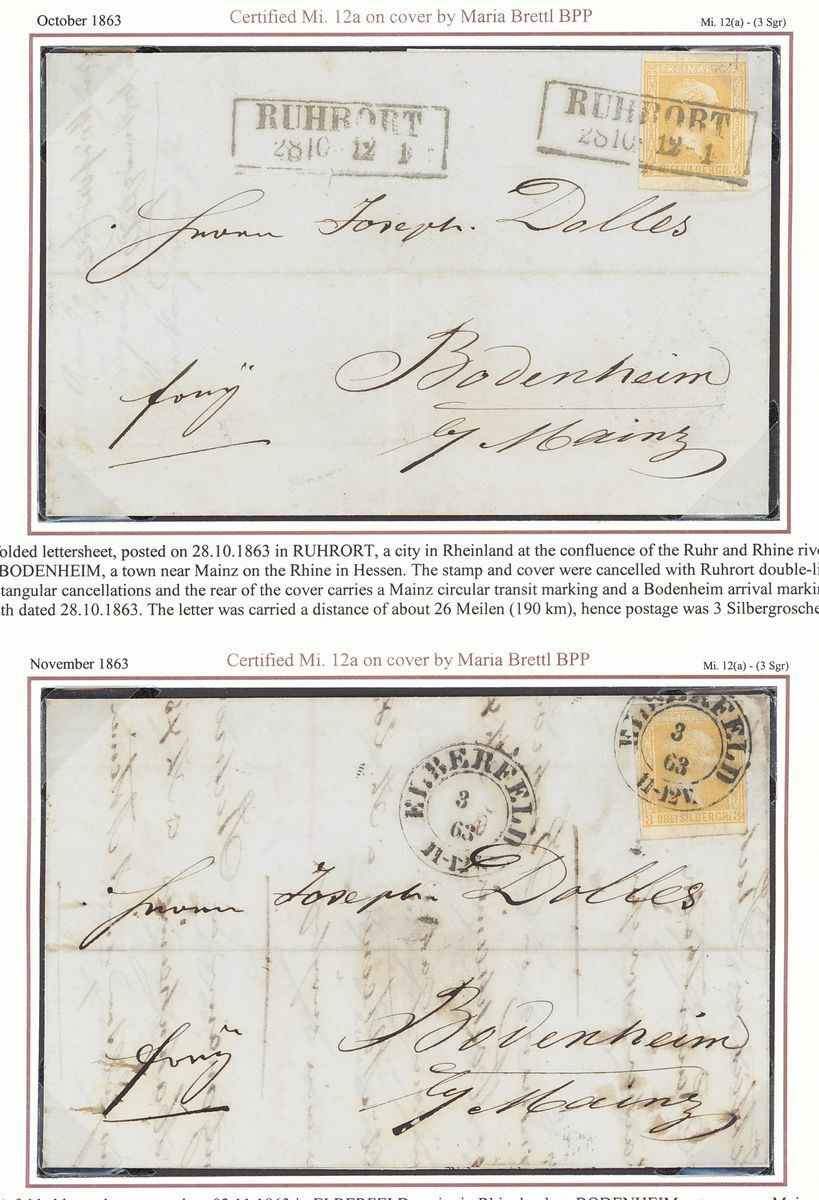 October 1863
Certified Mi. 12a on cover by Maria Brettl BPP
Mi. 12(a) - (3 Sgr)
RUHRORT
28 10 12 1
FREIMARKE
RUHRORT
28 10 12-1
DREI SILBERGR. 3
Herrn Joseph Dolles
Bodenheim
by Mainz
olded lettersheet, posted on 28.10.1863 in RUHRORT, a city in Rheinland at the confluence of the Ruhr and Rhine rive
BODENHEIM, a town near Mainz on the Rhine in Hessen. The stamp and cover were cancelled with Ruhrort double-li
tangular cancellations and the rear of the cover carries a Mainz circular transit marking and a Bodenheim arrival markin
th dated 28.10.1863. The letter was carried a distance of about 26 Meilen (190 km), hence postage was 3 Silbergrosche
November 1863
Certified Mi. 12a on cover by Maria Brettl BPP
Mi. 12(a) - (3 Sgr)
ELBERFELD
3
63
11-12V.
ELBERFELD
3
63
11-12V.
3 DREI SILBERGR. 3
Herrn Joseph Dolles
Bodenheim
by Mainz